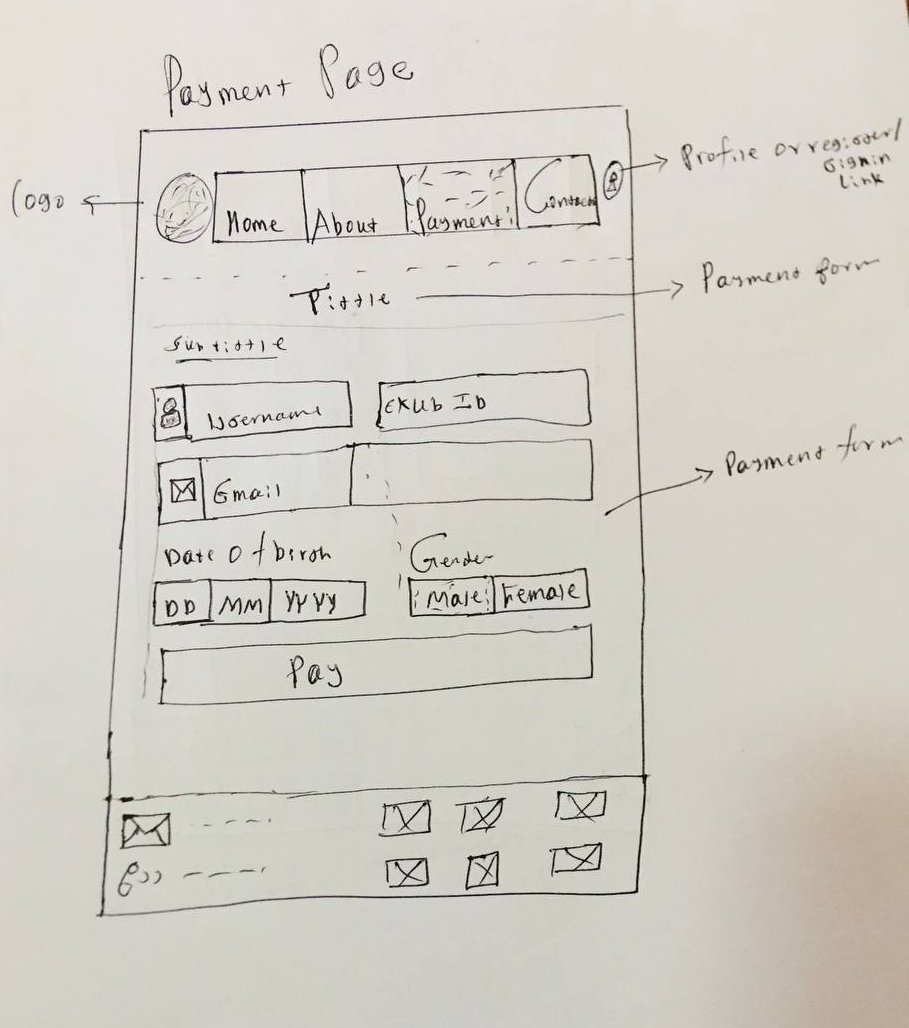 Payment Page
Logo
Home About Payment Contact
Profile or register/
Signin
Link
Tittle
Payment form
Subtittle
Username
EKUb ID
Gmail
Payment form
Date Of birth
Gender
DD MM YYYY
Male Female
Pay